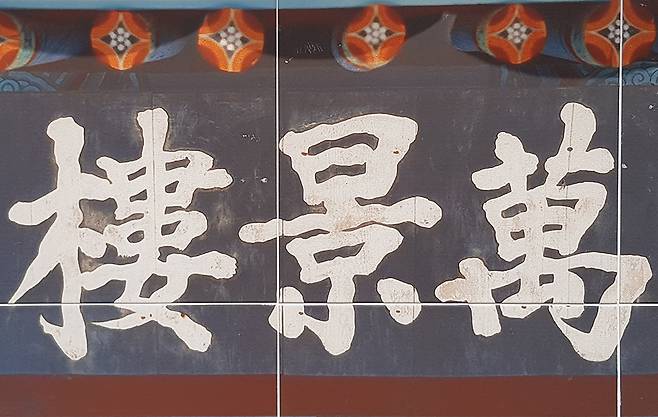 萬景樓